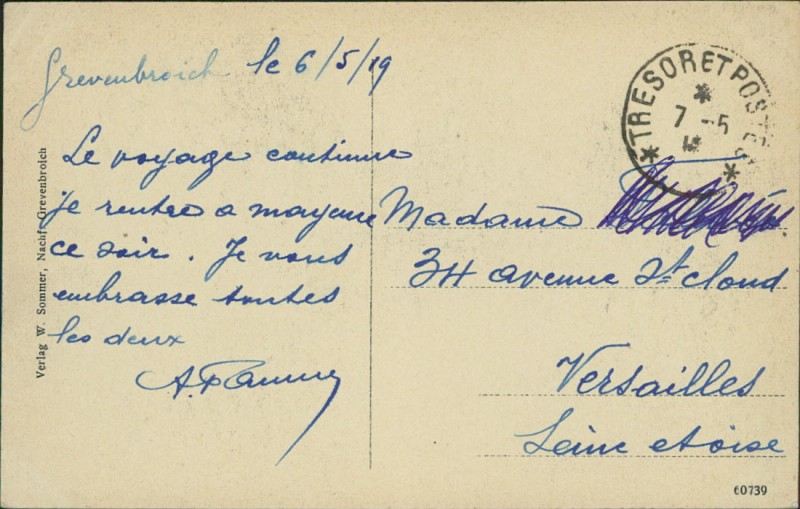 Grevenbroich le 6/5/19
Le voyage continue
je rentre a mayence
ce soir. Je vous
embrasse toutes
les deux
Madame
34 avenue St Cloud
Versailles
Seine et Oise
* TRESOR ET POSTES *
7 -5
Verlag W. Sommer, Nachf. Grevenbroich
60739